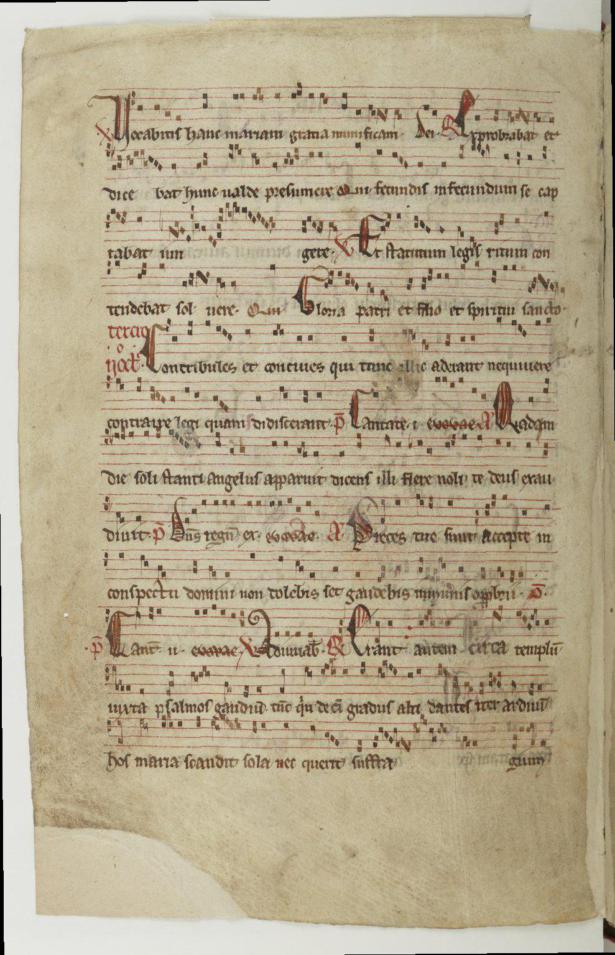 Vocabitis hanc mariam gratia munificam. Dei. R Exprobrabat et
dice bat hunc ualde presumere Qui fecundis infecundum se cap
tabat iun gere. V Et statutum legis ritum con
tendebat sol uere. Qui Gloria patri et filio et spiritui sancto.
tercio
noct. Contribules et conciues qui tunc illic aderant nequiuere
contraire legi quam didiscerant. p Cantate. i. euouae. A Quadam
die soli stanti angelus apparuit dicens illi flere noli te deus exau
diuit. p Dns regn ex. euouae. A Preces tue sunt accepte in
conspectu domini non dolebis set gaudebis p
p Cant. ii. euouae. V Adiuuab. R Erant autem circa templu
iuxta psalmos gradus alti dantes iter arduu
hos maria scandit sola nec querit suffra gium